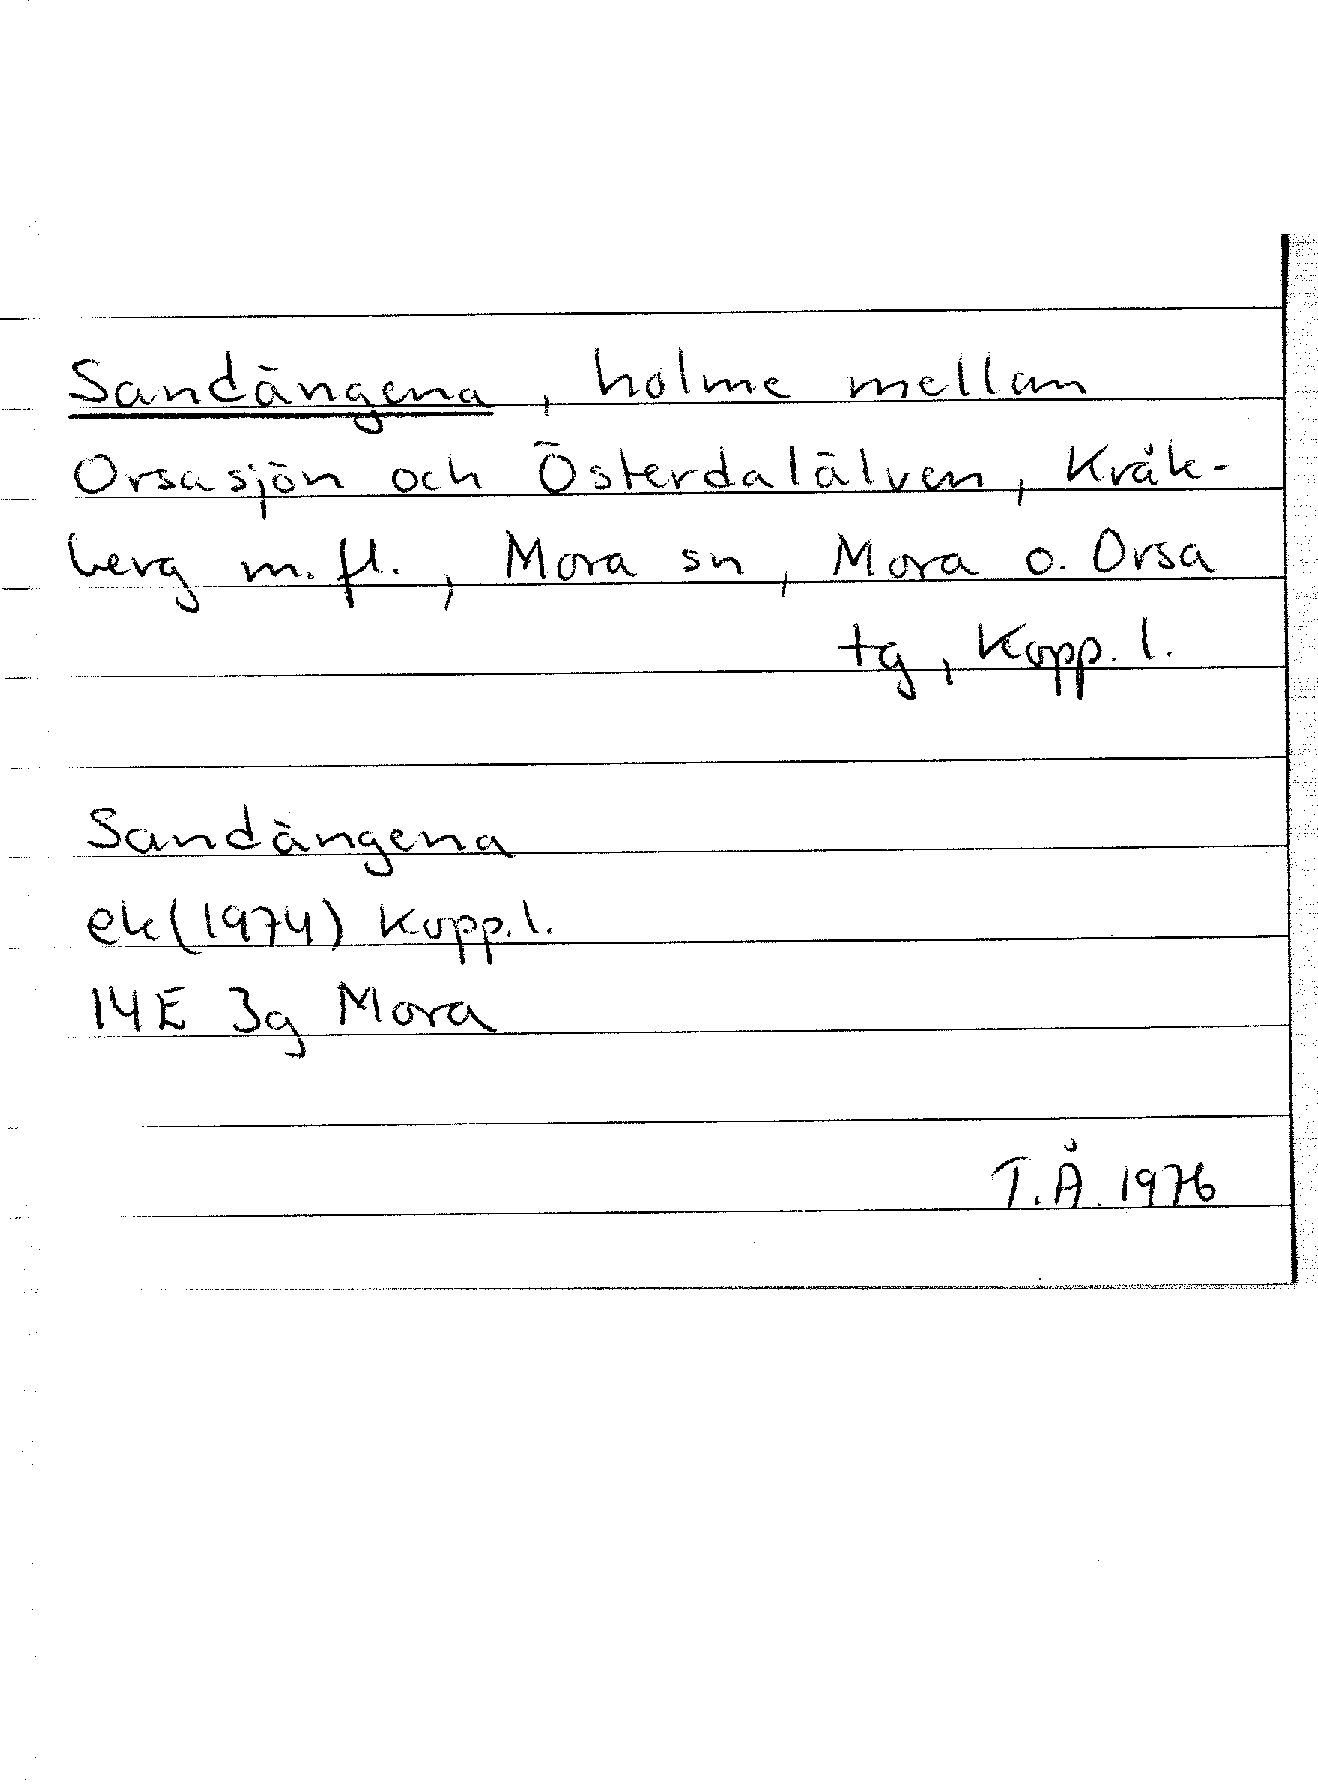 Sandängena, holme mellan
Orsasjön och Österdalälven, Kråk-
berg m.fl., Mora sn, Mora o. Orsa
tg, Kopp. l.
Sandängena
ek(1974) Kopp.l.
14E 3g Mora
T.Å. 1976